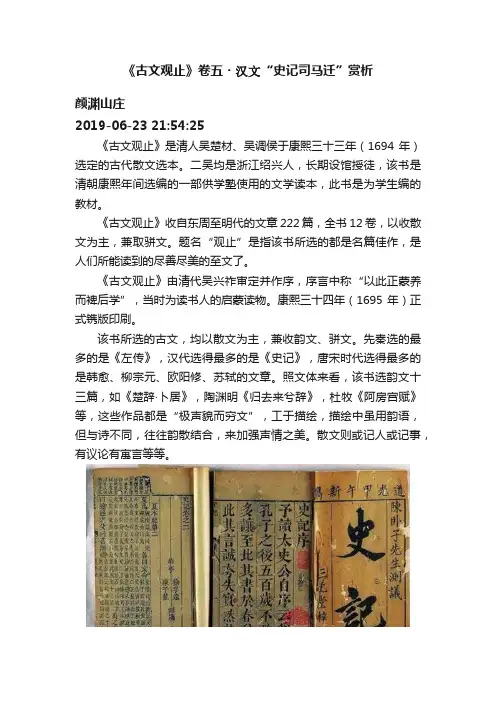 《古文观止》卷五·汉文“史记司马迁”赏析
颜渊山庄
2019-06-23 21:54:25
《古文观止》是清人吴楚材、吴调侯于康熙三十三年（1694 年）
选定的古代散文选本。二吴均是浙江绍兴人，长期设馆授徒，该书是
清朝康熙年间选编的一部供学塾使用的文学读本，此书是为学生编的
教材。
《古文观止》收自东周至明代的文章 222 篇，全书 12 卷，以收散
文为主，兼取骈文。题名“观止”是指该书所选的都是名篇佳作，是
人们所能读到的尽善尽美的至文了。
《古文观止》由清代吴兴祚审定并作序，序言中称“以此正蒙养
而裨后学”，当时为读书人的启蒙读物。康熙三十四年（1695 年）正
式镌版印刷。
该书所选的古文，均以散文为主，兼收韵文、骈文。先秦选的最
多的是《左传》，汉代选得最多的是《史记》，唐宋时代选得最多的
是韩愈、柳宗元、欧阳修、苏轼的文章。照文体来看，该书选韵文十
三篇，如《楚辞·卜居》，陶渊明《归去来兮辞》，杜牧《阿房宫赋》
等，这些作品都是“极声貌而穷文”，工于描绘，描绘中虽用韵语，
但与诗不同，往往韵散结合，来加强声情之美。散文则或记人或记事，
有议论有寓言等等。
道光甲午新鐫
陳卧子先生測議
史記
史記序
予讀太史公自序云
孔子之後五百歲不
多讓至此其書於春
此其言誠夸失實然
史記卷之二
夏本紀第二